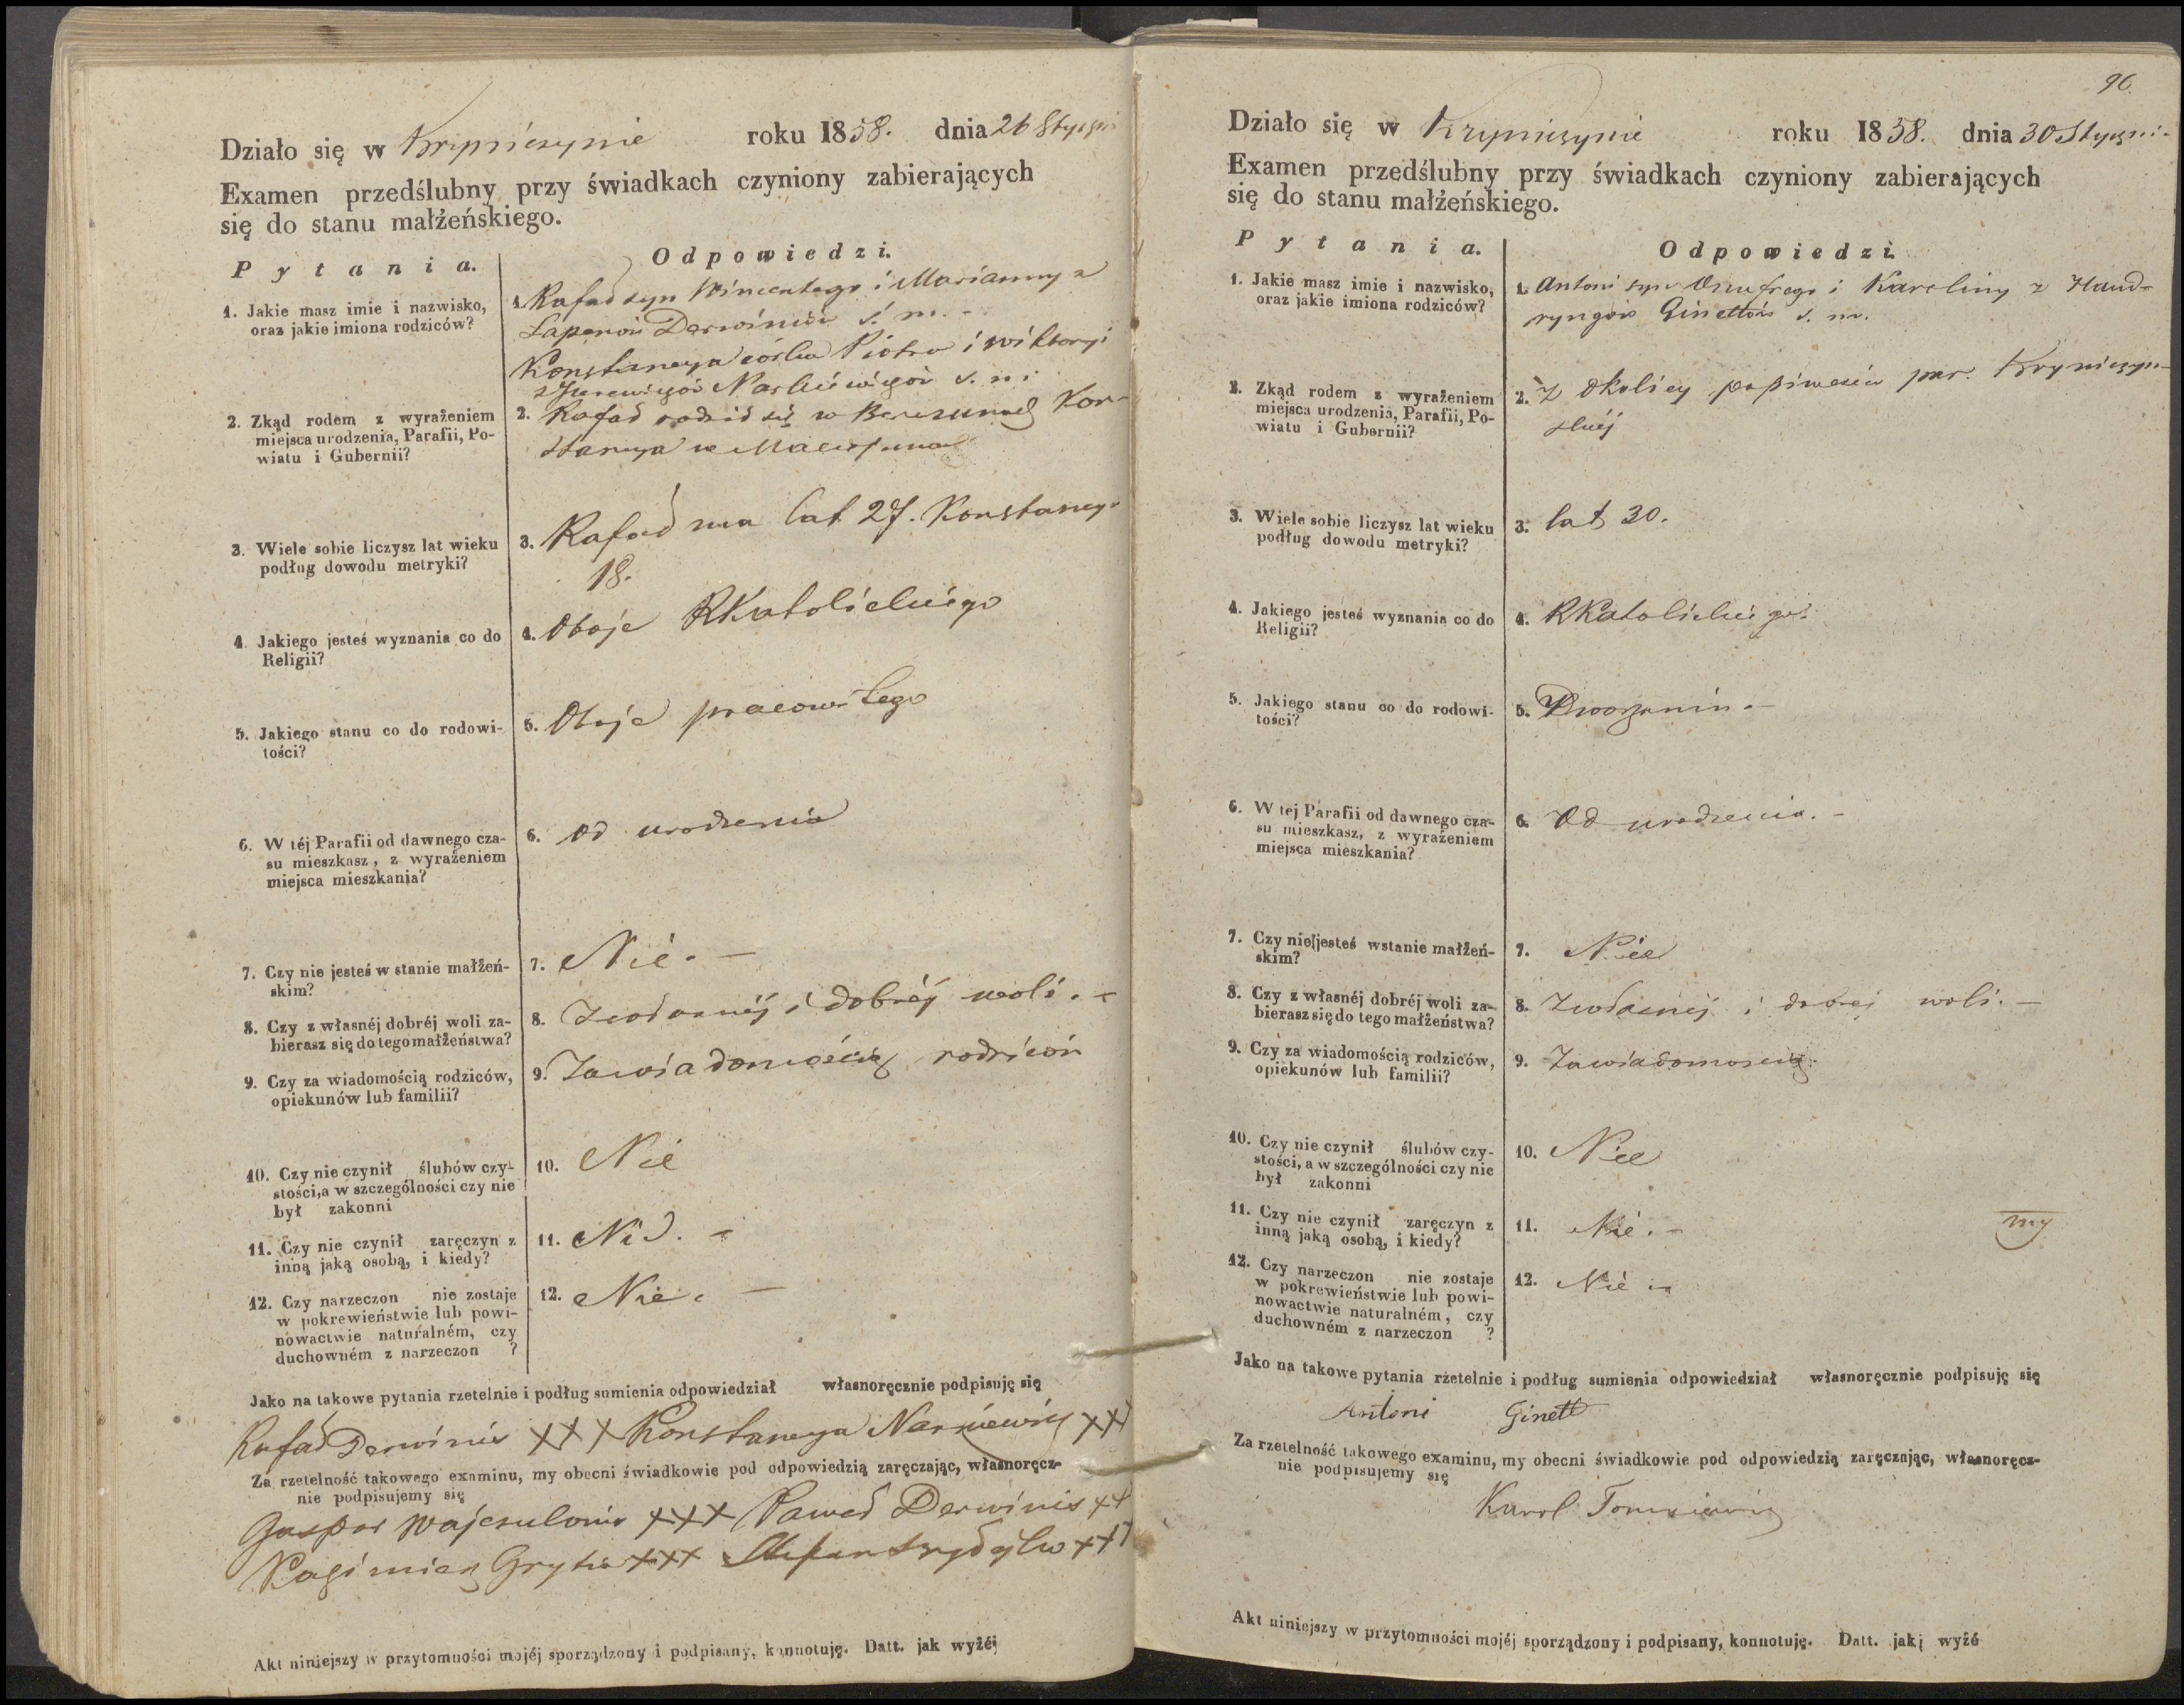 Działo się w Krypniczynie roku 1858. dnia 26 Stycz
Examen przedślubny przy świadkach czyniony zabierających
się do stanu małżeńskiego.
Pytania. Odpowiedzi.
1. Jakie masz imie i nazwisko,
oraz jakie imiona rodziców?
1. Rafał syn Wincentego i Marianny z
Derwinów s. m. -
Konstancya córka Piotra i Wiktoryi
s. m.
2. Zkąd rodem z wyrażeniem
miejsca urodzenia, Parafii, Po-
wiatu i Gubernii?
2. Rafał rodził się w Kon-
stancya w
3. Wiele sobie liczysz lat wieku
podług dowodu metryki?
3. Rafał ma lat 27. Konstancya
18.
4. Jakiego jesteś wyznania co do
Religii?
4. Oboje RKatolickiego
5. Jakiego stanu co do rodowi-
tości?
5. Oboje pracowitego
6. W téj Parafii od dawnego cza-
su mieszkasz, z wyrażeniem
miejsca mieszkania?
6. od urodzenia
7. Czy nie jesteś w stanie małżeń-
skim?
7. Nie. -
8. Czy z własnéj dobréj woli za-
bierasz się do tego małżeństwa?
8. Zwłasnéj i dobréj woli. -
9. Czy za wiadomością rodziców,
opiekunów lub familii?
9. Zawiadomością rodziców
10. Czy nie czynił ślubów czy-
stości, a w szczególności czy nie
był zakonni
10. Nie
11. Czy nie czynił zaręczyn z
inną jaką osobą, i kiedy?
11. Nie. -
12. Czy narzeczon nie zostaje
w pokrewieństwie lub powi-
nowactwie naturalném, czy
duchowném z narzeczon ?
12. Nie. -
Jako na takowe pytania rzetelnie i podług sumienia odpowiedział własnoręcznie podpisuję się
Rafał Derwinis XXX Konstancya Narkiewicz XXX
Za rzetelność takowego examinu, my obecni świadkowie pod odpowiedzią zaręczając, własnoręcz-
nie podpisujemy się
Gasper XXX Paweł Derwinis XX
Kazimierz XXX XXX
Akt niniejszy w przytomności mojéj sporządzony i podpisany, konnotuję. Datt. jak wyżéj
96.
Działo się w Krypniczynie roku 1858. dnia 30 Styczni
Examen przedślubny przy świadkach czyniony zabierających
się do stanu małżeńskiego.
Pytania. Odpowiedzi.
1. Jakie masz imie i nazwisko,
oraz jakie imiona rodziców?
1. Antoni syn Onufrego i Karoliny z Hand-
ryngów Ginettów s. m.
2. Zkąd rodem z wyrażeniem
miejsca urodzenia, Parafii, Po-
wiatu i Gubernii?
2. Z Okolicy par. Krypniczyn-
skiéj
3. Wiele sobie liczysz lat wieku
podług dowodu metryki?
3. lat 30.
4. Jakiego jesteś wyznania co do
Religii?
4. RKatolickiego.
5. Jakiego stanu co do rodowi-
tości?
5. Dworzanin. -
6. W tej Parafii od dawnego cza-
su mieszkasz, z wyrażeniem
miejsca mieszkania?
6. Od urodzenia. -
7. Czy nie jesteś wstanie małżeń-
skim?
7. Nie
8. Czy z własnéj dobréj woli za-
bierasz się do tego małżeństwa?
8. Zwłasnéj i dobrej woli. -
9. Czy za wiadomością rodziców,
opiekunów lub familii?
9. Zawiadomością.
10. Czy nie czynił ślubów czy-
stości, a w szczególności czy nie
był zakonni
10. Nie
11. Czy nie czynił zaręczyn z
inną jaką osobą, i kiedy?
11. Nie. -
my
12. Czy narzeczon nie zostaje
w pokrewieństwie lub powi-
nowactwie naturalném, czy
duchowném z narzeczon ?
12. Nie. -
Jako na takowe pytania rzetelnie i podług sumienia odpowiedział własnoręcznie podpisuję się
Antoni Ginett
Za rzetelność takowego examinu, my obecni świadkowie pod odpowiedzią zaręczając, własnoręcz-
nie podpisujemy się
Karol
Akt niniejszy w przytomności mojéj sporządzony i podpisany, konnotuję. Datt. jak wyżé